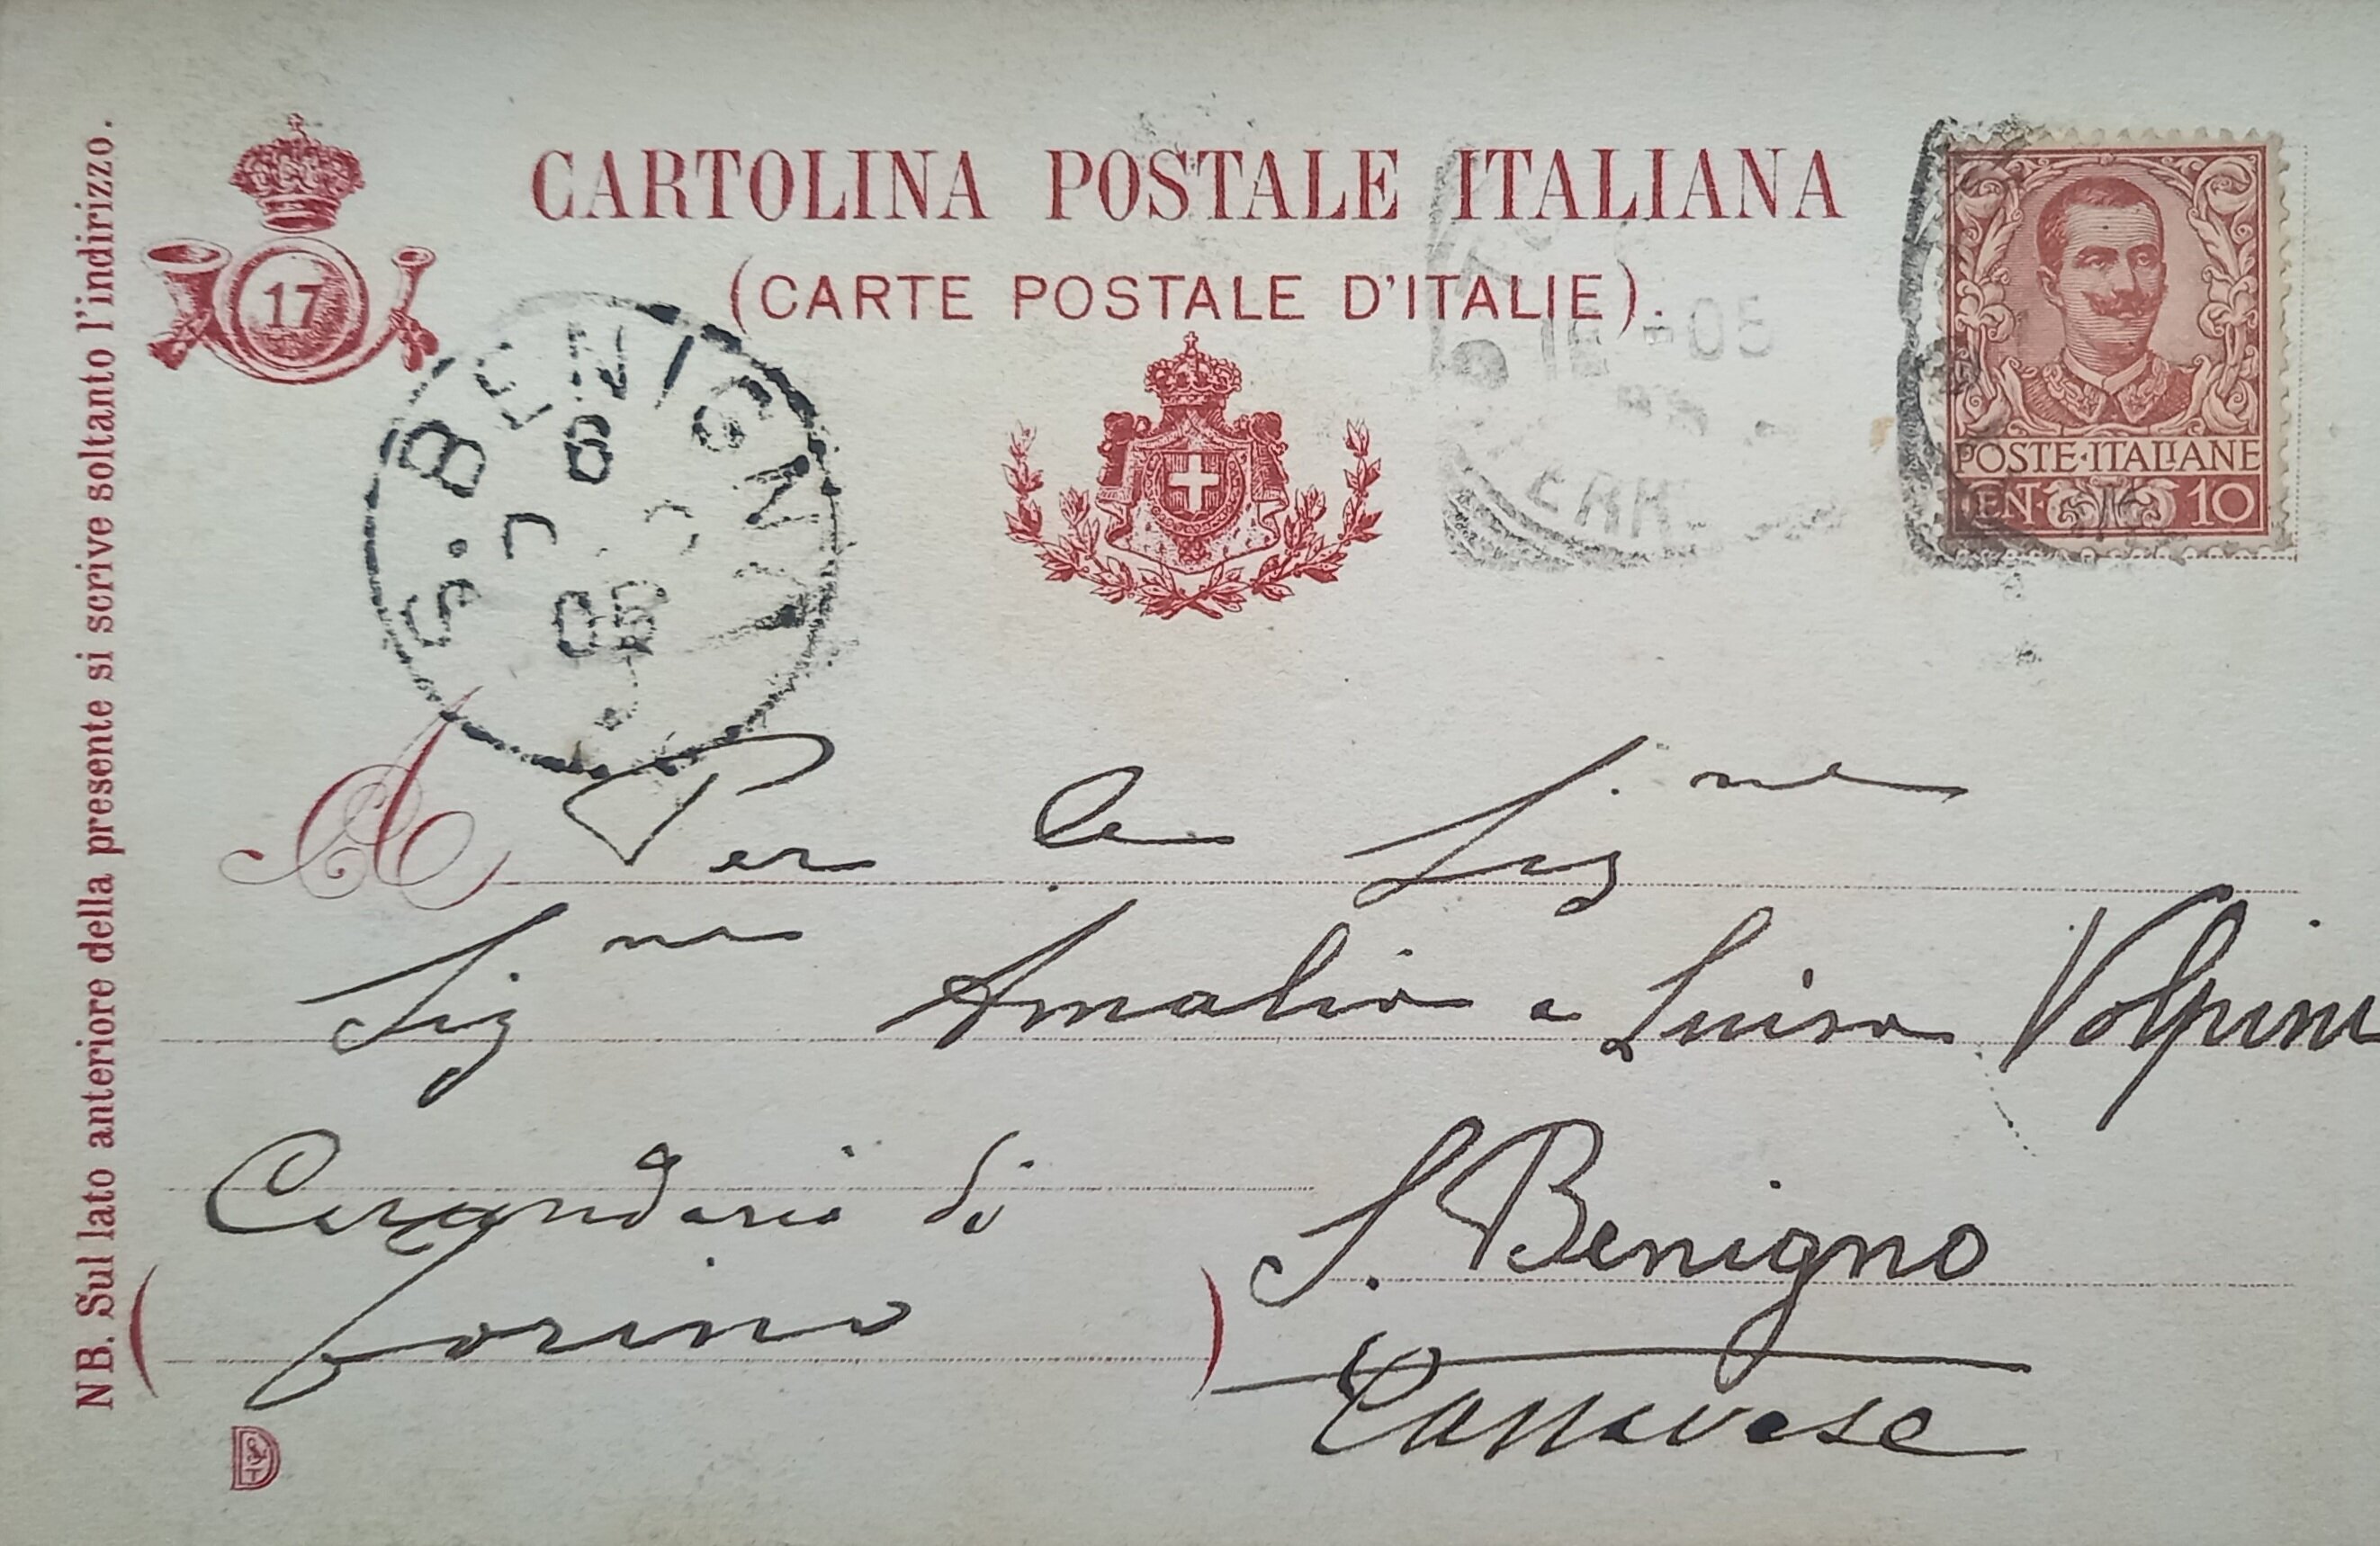 CARTOLINA POSTALE ITALIANA
(CARTE POSTALE D'ITALIE).
17
NB. Sul lato anteriore della presente si scrive soltanto l'indirizzo.
S. BENIGNO
05
05
POSTE·ITALIANE
CEN. 10
A Per le Sig.ne
Sig.ne Amalia e Luisa Volpini
Circondario di
Torino
S. Benigno
Canavese